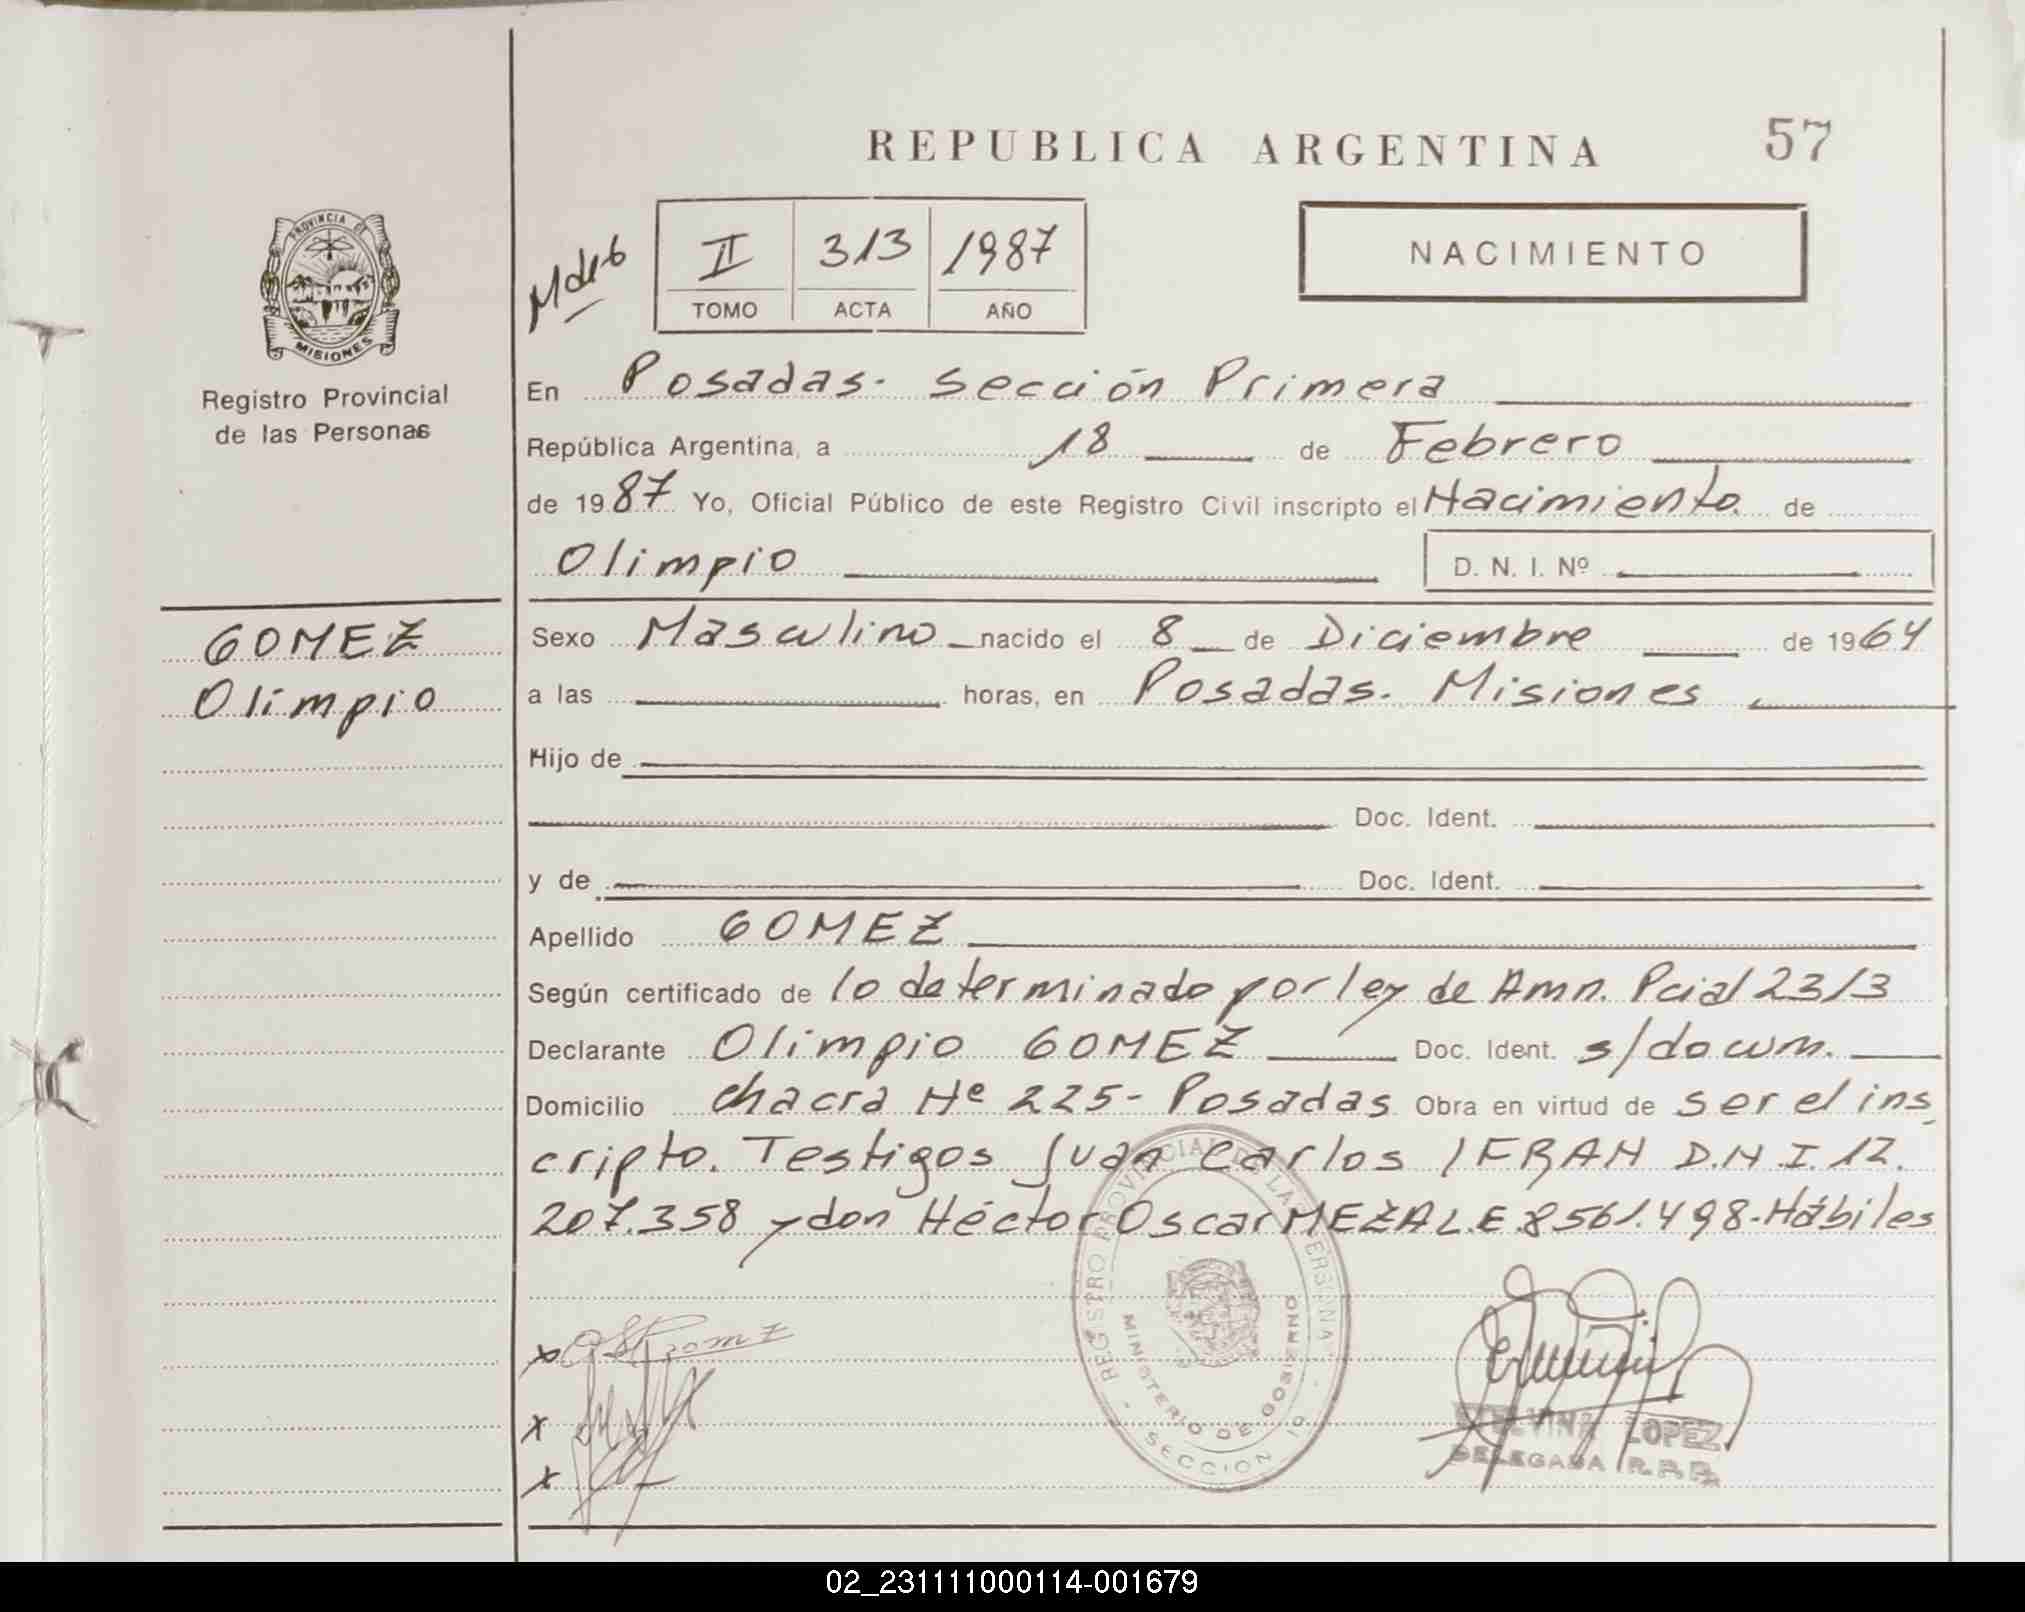 REPUBLICA ARGENTINA
57
PROVINCIA DE
MISIONES
Registro Provincial
de las Personas
II 313 1987
TOMO ACTA AÑO
NACIMIENTO
En Posadas. Sección Primera
República Argentina, a 18 de Febrero
de 1987 Yo, Oficial Público de este Registro Civil inscripto el Nacimiento de
Olimpio D. N. I. Nº
GOMEZ
Olimpio
Sexo Masculino nacido el 8 de Diciembre de 1964
a las horas, en Posadas. Misiones
Hijo de
Doc. Ident.
y de Doc. Ident.
Apellido GOMEZ
Según certificado de lo determinado por ley de Amn. Pcial 2313
Declarante Olimpio GOMEZ Doc. Ident. s/docum.
Domicilio chacra Nº 225- Posadas Obra en virtud de ser el ins
cripto. Testigos Juan Carlos IFRAN D.N.I. 12.
207.358 y don Héctor Oscar MEZA L.E 8561.498. Hábiles
REGISTRO PROVINCIAL DE LAS PERSONAS
MINISTERIO DE GOBIERNO
SECCION 1º
LOPEZ
DELEGADA R.P.P.
02_231111000114-001679